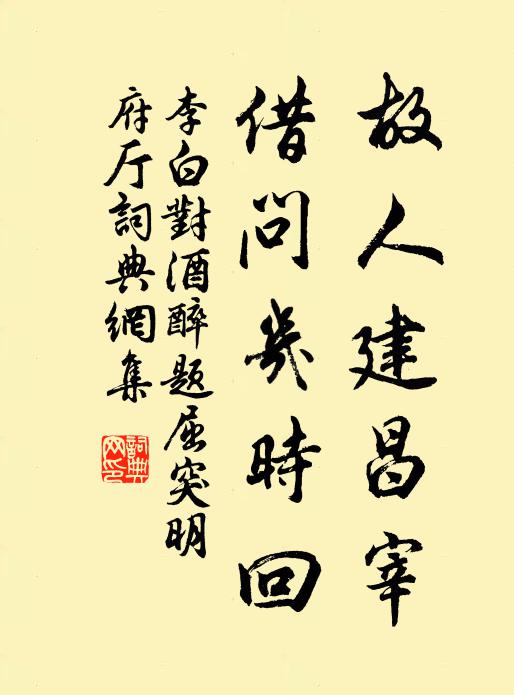 故人建昌宰
借問幾時回
李白對酒醉題屈突明
府厅詞典網集
詞典网印